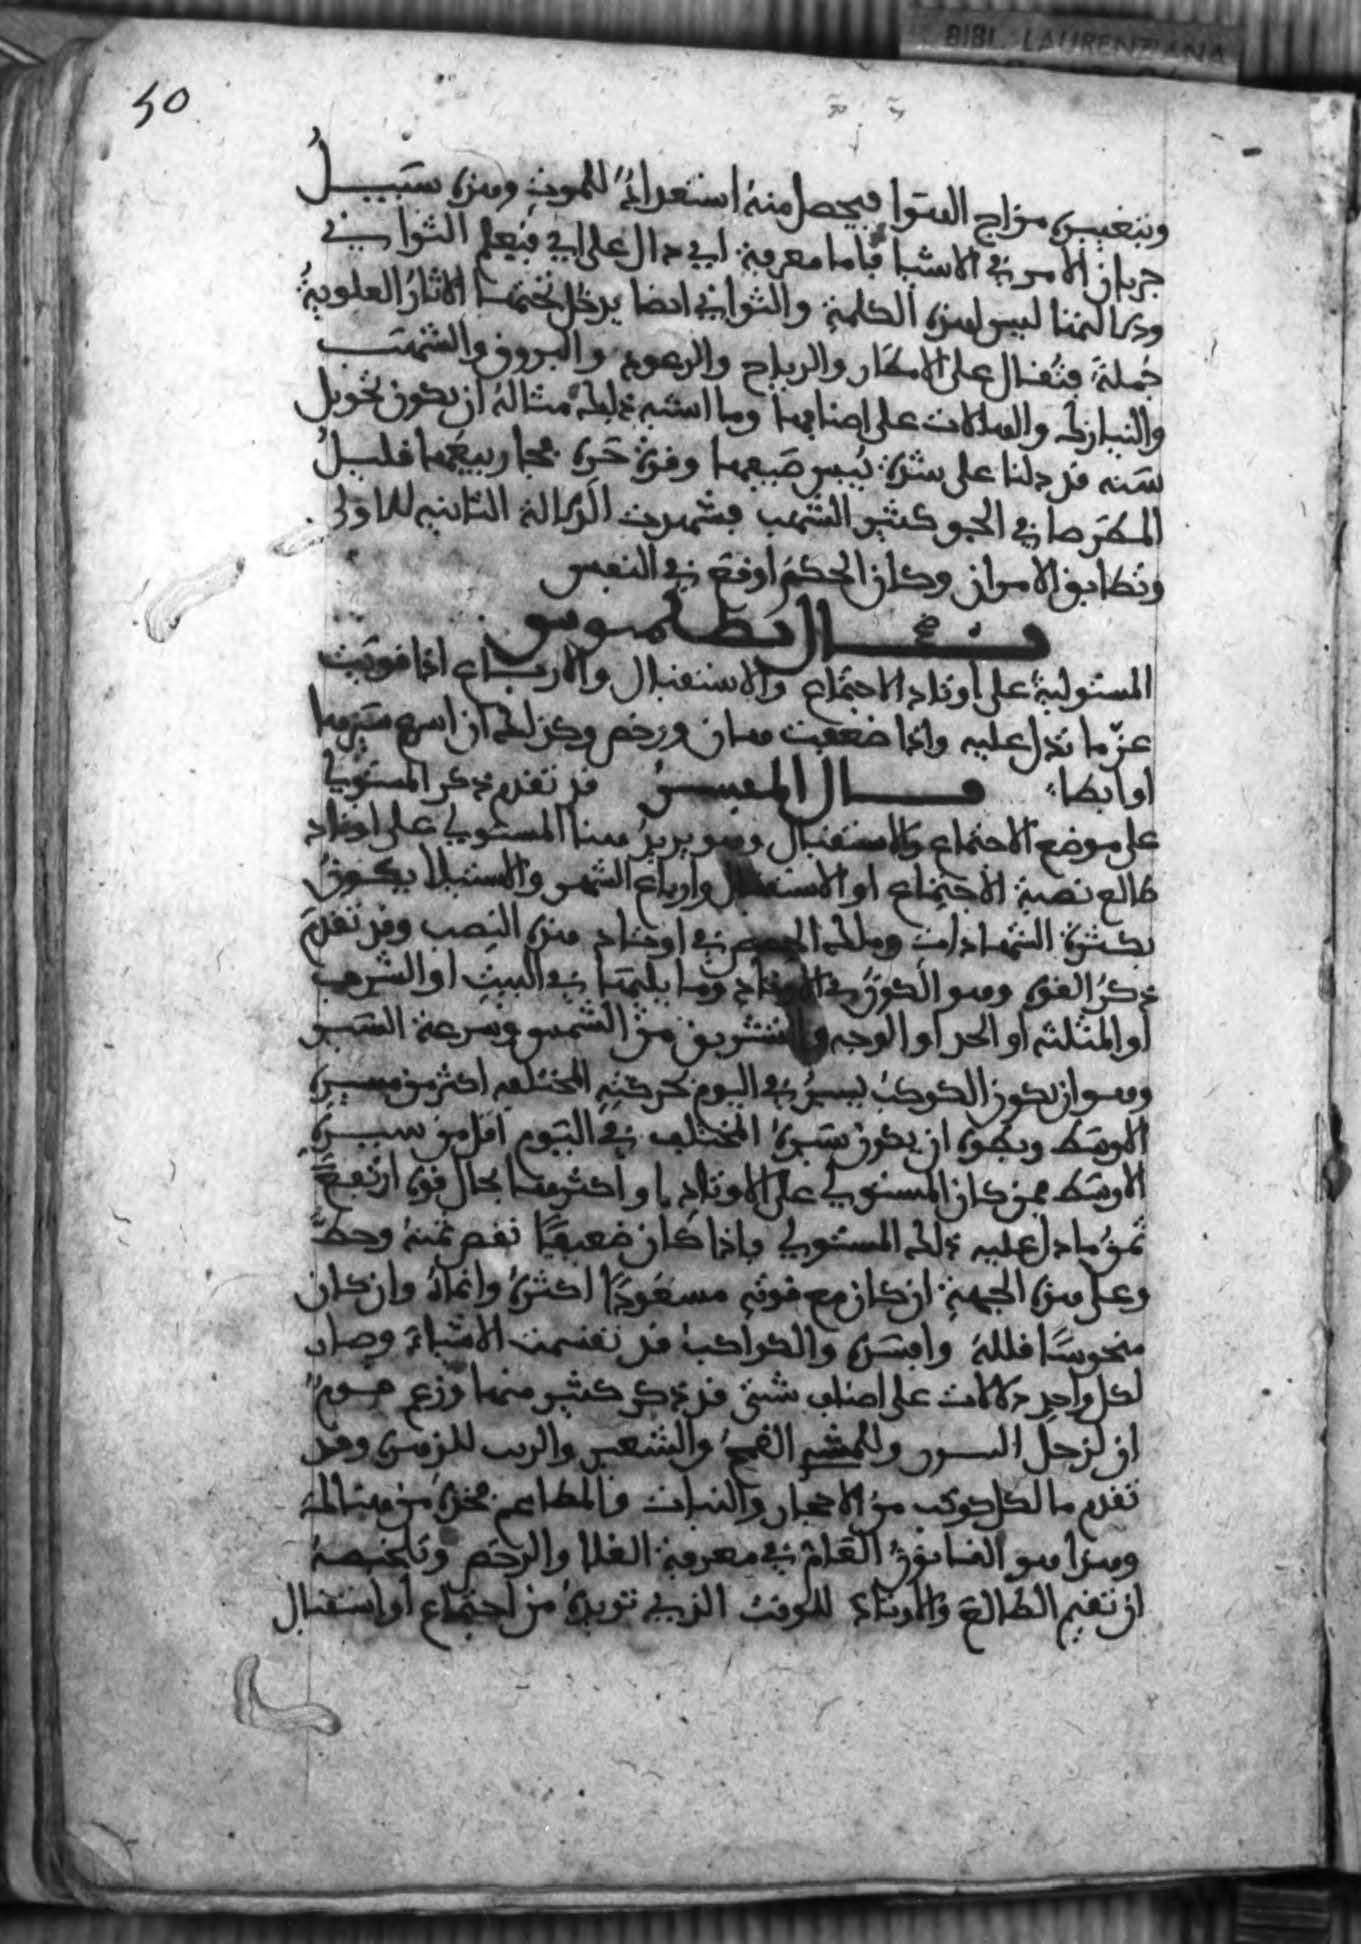 BIBL. LAURENZIANA
50
وبتغيير مزاج الهوا فيحصل منه استعداد للموت وهذه سبيل
جريان الامر في الاشيا فاما معرفة اي دال على اي فيعلم الثواني
ودلالتها ليس هذه الكلمة والثواني ايضا يدخل تحتها الاثار العلوية
جملة فتقال على الامطار والرياح والرعود والبروق والشهب
والنيازك والهالات على اصنافها وما اشبه ذلك مثاله ان يكون تحويل
سنه قد دلنا على شدة يبس صيفها وقوة حره مجا ربيعها قليل
المطر صافي الجو كثير الشهب فشهدت الدلالة الثانيه للاولى
وتطابق الامران وكان الحكم اوقع في النفس
قال بطلميوس
المستولية على اوتاد الاجتماع والاستقبال والارباع اذا قويت
عز ما تدل عليه واذا ضعفت هان ورخص وكذلك ان اسرع سيرها
او ابطا قال المفسر قد تقدم ذكر المستوليا
على موضع الاجتماع والاستقبال وهو يريد هنا المستولي على اوتاد
طالع نصبة الاجتماع او الاستقبال وارباع الشمس والاستيلا يكون
بكثرة الشهادات وملك الحصص في اوتاد هذه النصب وقد تقدم
ذكر القوى وهو الكون في الاوتاد وما يليها في البيت او الشرف
او المثلثه او الحد او الوجه والتشريق من الشمس وسرعة السير
وهو ان يكون الكوكب يسير في اليوم بحركته المختلفه اكثر من مسيره
الاوسط وبطوه ان يكون سيره المختلف في اليوم اقل من سيره
الاوسط فمن كان المستولي على الاوتاد او اكثرها بحال قوة ارتفع
ثمن ما دل عليه ذلك المستولي واذا كان ضعيفا نقص ثمنه وحط
وعلى هذه الجهة ان كان مع قوته مسعودا اكثره وانماه وان كان
منحوسا قلله وافسده والكواكب قد تقسمت الاشياء وصار
لكل واحد دلالات على اصناف شتى قد ذكر كثير منها وزعم قوم
ان لزحل السود وللمشتر القمح والشعير والزيت للزهرة وقد
تقدم ما لكل كوكب من الاحجار والنبات والمطاعم فخذه من هنالك
وهذا هو القانون العام في معرفة الغلا والرخص وتلخيصه
ان تقيم الطالع والاوتاد للوقت الذي تريده من اجتماع او استقبال